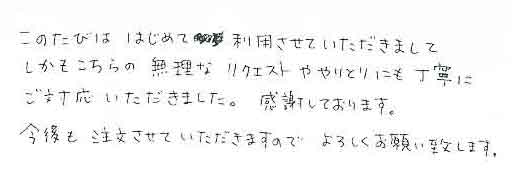 このたびは はじめて 利用させていただきまして
しかもこちらの 無理な リクエストや やりとりにも 丁寧に
ご対応 いただきました。 感謝しております。
今後も 注文させていただきますので よろしくお願い致します。